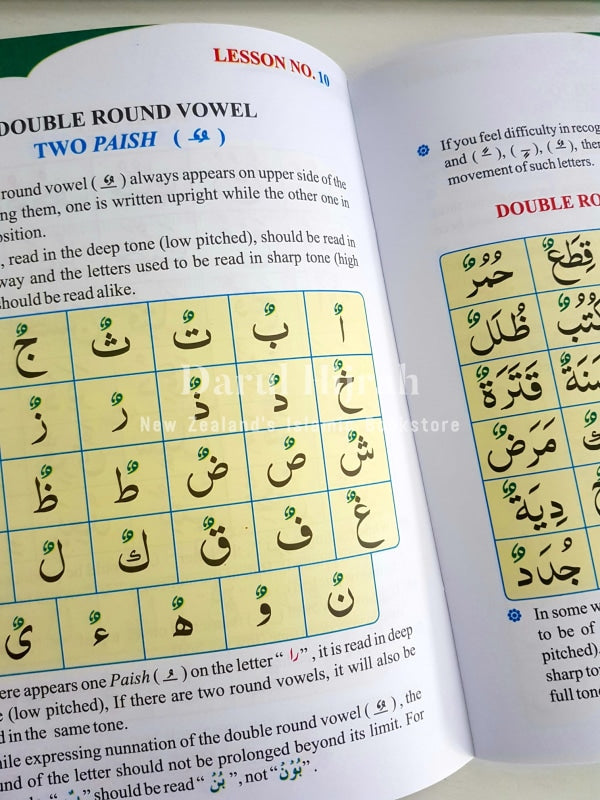 LESSON NO. 10
DOUBLE ROUND VOWEL
TWO PAISH ( ـٌ )
round vowel ( ـٌ ) always appears on upper side of the
them, one is written upright while the other one in
read in the deep tone (low pitched), should be read in
way and the letters used to be read in sharp tone (high
should be read alike.
اٌ بٌ تٌ ثٌ جٌ
دٌ ذٌ رٌ زٌ
شٌ صٌ ضٌ طٌ ظٌ
غٌ فٌ قٌ كٌ لٌ
نٌ وٌ هٌ ءٌ یٌ
appears one Paish ( ـُ ) on the letter “ را ”, it is read in deep
(low pitched), If there are two round vowels, it will also be
in the same tone.
expressing nunnation of the double round vowel ( ـٌ ), the
of the letter should not be prolonged beyond its limit. For
” should be read “ بُنْ ”, not “ بُوْنْ ”.
If you feel difficulty in
and ( ـً ), ( ـٍ ), ( ـٌ ),
movement of such letters.
DOUBLE
قِطَعٌ حُمُرٌ
ظُلَلٌ
قَتَرَةٌ
مَرَضٌ
دِيَةٌ
جُدَدٌ
In some
to be of
pitched).
sharp
full
Darul Hijrah
New Zealand's Islamic Bookstore